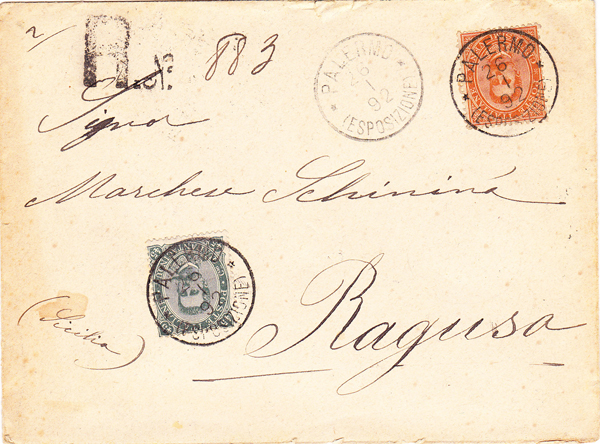 R
883
PALERMO
26
1
92
(ESPOSIZIONE)
PALERMO
26
1
92
(ESPOSIZIONE)
Signor
Marchese Schininà
PALERMO
26
1
92
(ESPOSIZIONE)
Ragusa
(Sicilia)